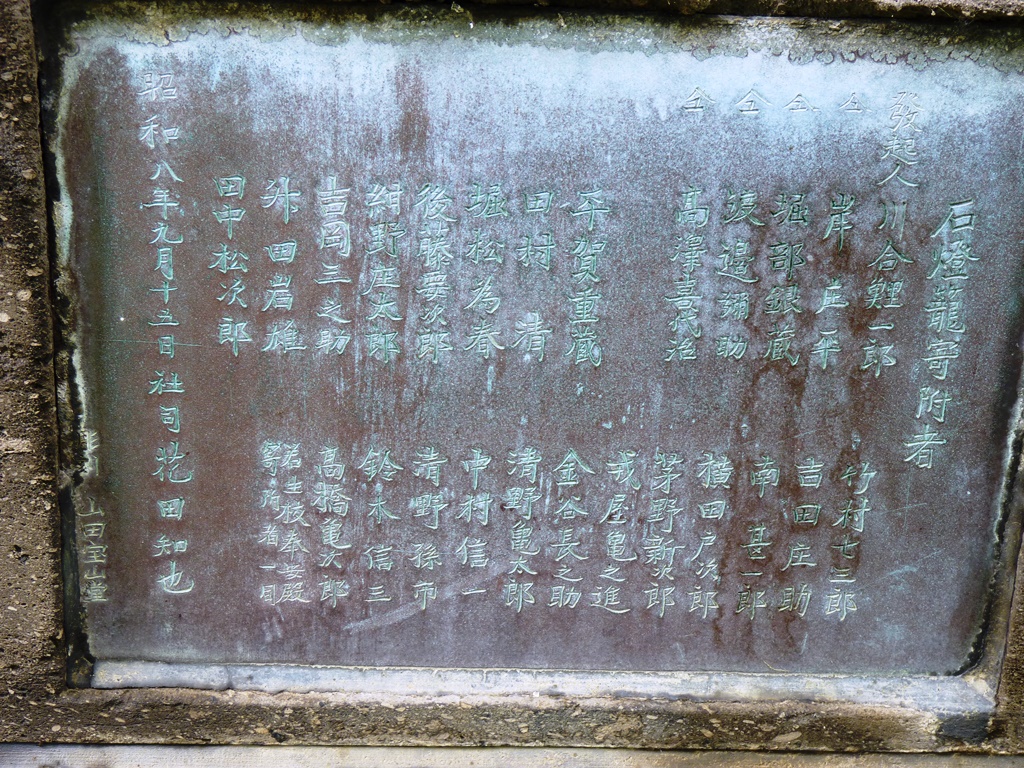 石燈籠寄附者
發起人 川合鯉一郎
仝 岸庄平
仝 堀部銀蔵
仝 渡邉彌助
仝 高澤喜代治
平賀重蔵
田村清
堀松為春
後藤要次郎
紺野庄太郎
吉岡三之助
舛田岩雄
田中松次郎
竹村七三郎
吉田庄助
南甚一郎
横田戸次郎
茅野新次郎
戎屋亀之進
金谷長之助
清野亀太郎
中村信一
清野孫市
鈴木信三
高橋亀次郎
奉安殿
寄附者一同
昭和八年九月十五日 社司 花田知也
山田宝山堂